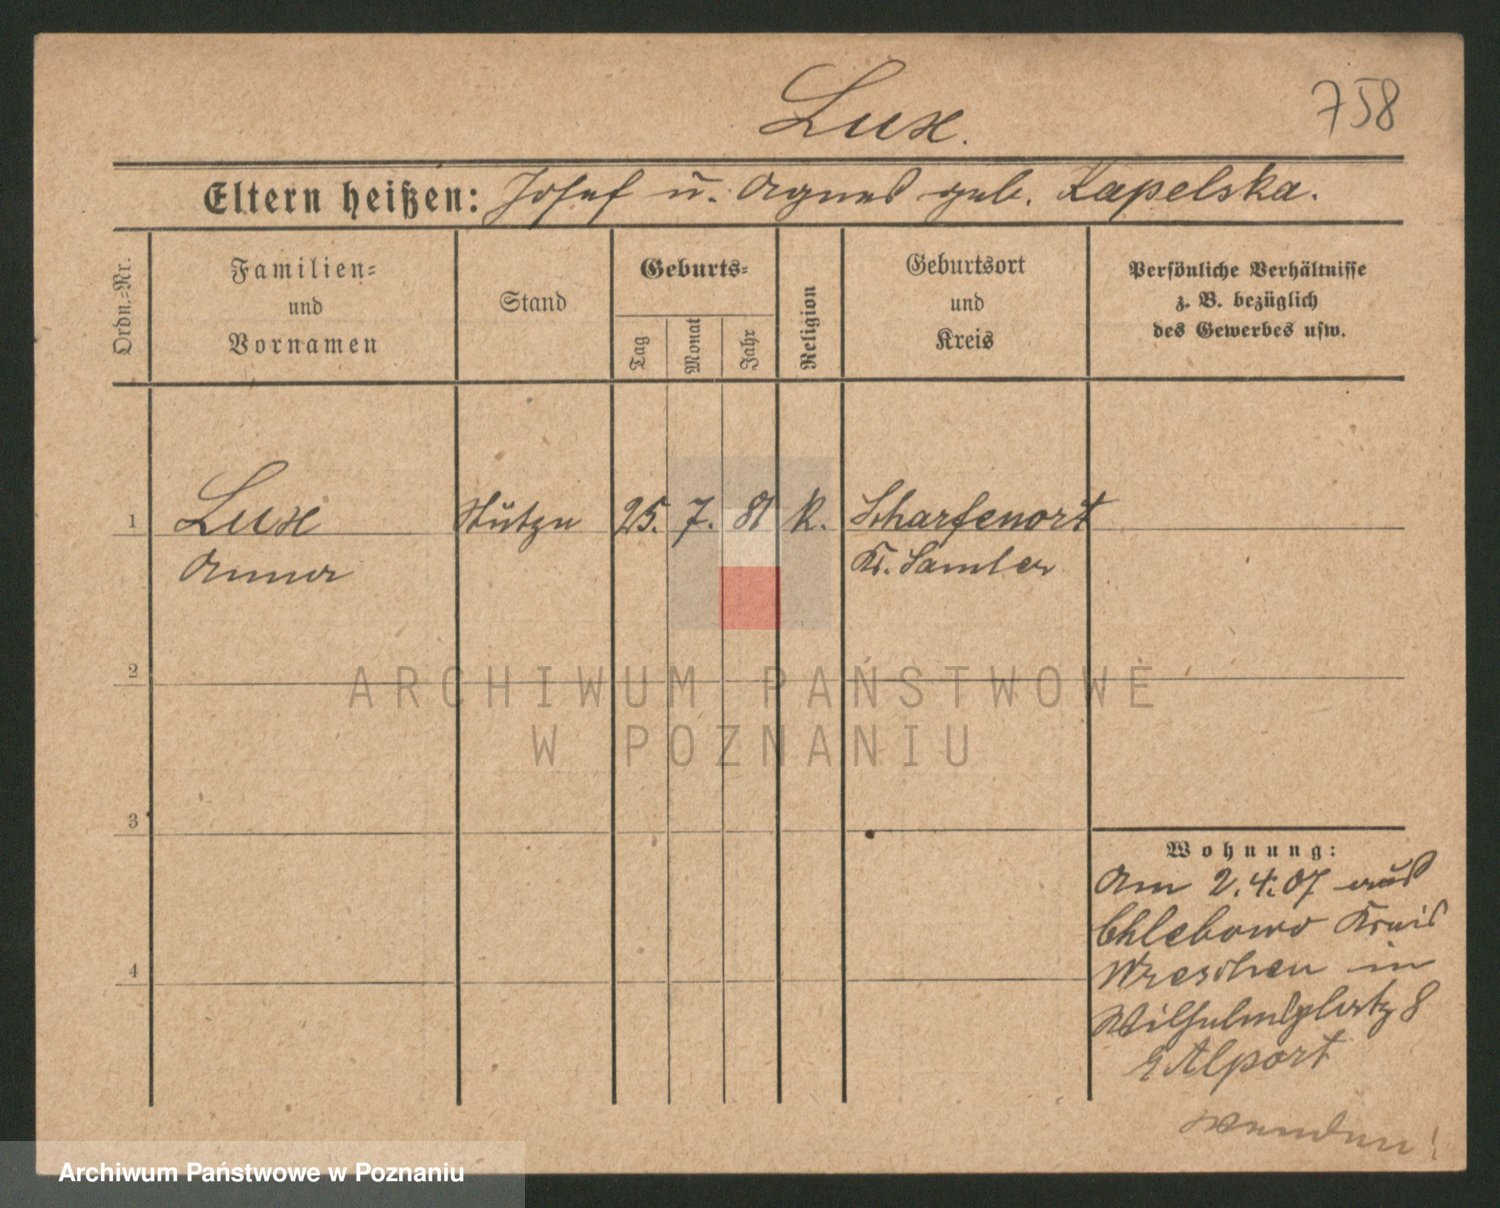 Lux.
758
Eltern heißen: Josef u. Agnes geb. Kapelska.
Ordn.-Nr.
Familien-
und
Vornamen
Stand
Geburts-
Tag
Monat
Jahr
Religion
Geburtsort
und
Kreis
Persönliche Verhältnisse
z. B. bezüglich
des Gewerbes usw.
1 Lux Stütze 25. 7. 81 K. Scharfenort
Anna Kr. Samter
2
3
4
Wohnung:
Am 2.4.07 aus
Chlebowo Kreis
Wreschen in
Wilhelmsplatz 8
Alport
wenden!
ARCHIWUM PAŃSTWOWE
W POZNANIU
Archiwum Państwowe w Poznaniu